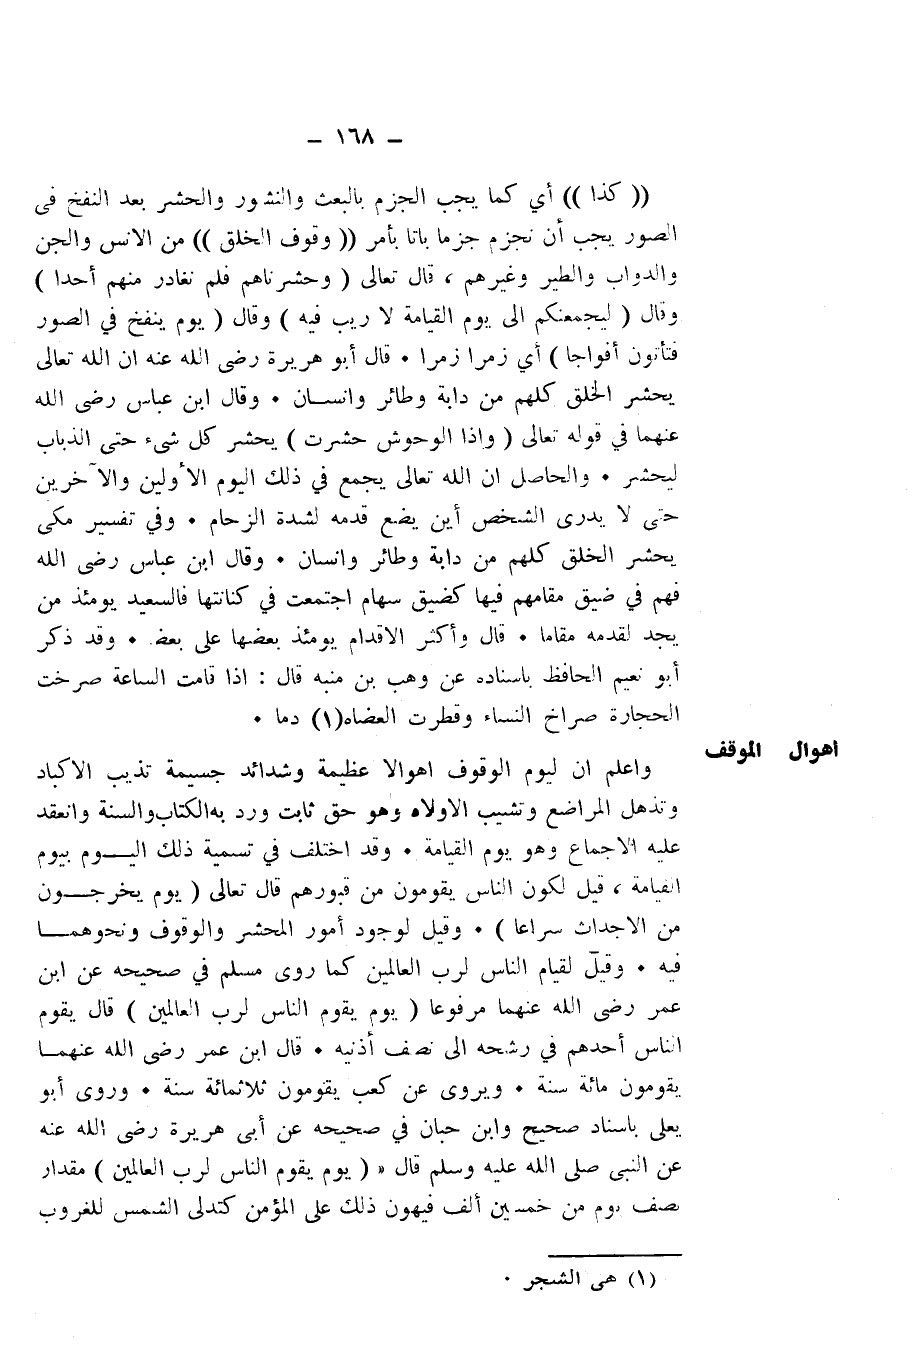 – ١٦٨ –
(( كذا )) أي كما يجب الجزم بالبعث والنشور والحشر بعد النفخ فى
الصور يجب أن نجزم جزما باتا بأمر (( وقوف الخلق )) من الانس والجن
والدواب والطير وغيرهم ، قال تعالى ( وحشرناهم فلم نغادر منهم أحدا )
وقال ( ليجمعنكم الى يوم القيامة لا ريب فيه ) وقال ( يوم ينفخ في الصور
فتأتون أفواجا ) أي زمرا زمرا • قال أبو هريرة رضى الله عنه ان الله تعالى
يحشر الخلق كلهم من دابة وطائر وانسـان • وقال ابن عباس رضى الله
عنهما في قوله تعالى ( واذا الوحوش حشرت ) يحشر كل شىء حتى الذباب
ليحشر • والحاصل ان الله تعالى يجمع في ذلك اليوم الأولين والآخرين
حتى لا يدرى الشخص أين يضع قدمه لشدة الزحام • وفي تفسير مكى
يحشر الخلق كلهم من دابة وطائر وانسان • وقال ابن عباس رضى الله
فهم في ضيق مقامهم فيها كضيق سهام اجتمعت في كنانتها فالسعيد يومئذ من
يجد لقدمه مقاما • قال وأكثر الاقدام يومئذ بعضها على بعض • وقد ذكر
أبو نعيم الحافظ باسناده عن وهب بن منبه قال : اذا قامت الساعة صرخت
الحجارة صراخ النساء وقطرت العضاه(١) دما •
اهوال الموقف
واعلم ان ليوم الوقوف اهوالا عظيمة وشدائد جسيمة تذيب الاكباد
وتذهل المراضع وتشيب الاولاد وهو حق ثابت ورد به الكتاب والسنة وانعقد
عليه الاجماع وهو يوم القيامة • وقد اختلف في تسمية ذلك اليــوم بيوم
القيامة ، قيل لكون الناس يقومون من قبورهم قال تعالى ( يوم يخرجــون
من الاجداث سراعا ) • وقيل لوجود أمور المحشر والوقوف ونحوهمــا
فيه • وقيل لقيام الناس لرب العالمين كما روى مسلم في صحيحه عن ابن
عمر رضى الله عنهما مرفوعا ( يوم يقوم الناس لرب العالمين ) قال يقوم
الناس أحدهم في رشحه الى نصف أذنيه • قال ابن عمر رضى الله عنهمـا
يقومون مائة سنة • ويروى عن كعب يقومون ثلاثمائة سنة • وروى أبو
يعلى باسناد صحيح وابن حبان في صحيحه عن أبى هريرة رضى الله عنه
عن النبى صلى الله عليه وسلم قال « ( يوم يقوم الناس لرب العالمين ) مقدار
نصف يوم من خمسين ألف فيهون ذلك على المؤمن كتدلى الشمس للغروب
(١) هى الشجر •